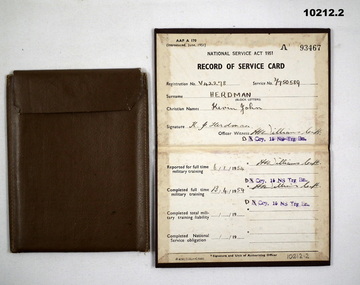 10212.2
AAF A 176
(Introduced June, 1951)
NATIONAL SERVICE ACT 1951
A 93467
RECORD OF SERVICE CARD
Registration No. V42278 Service No. 3/750589
Surname HERDMAN
(BLOCK LETTERS)
Christian Names Kevin John
Signature K. J. Herdman
Officer Witness
D Coy, 15 NS Trg Bn.
Reported for full time
military training
D Coy, 15 NS Trg Bn.
Completed full time
military training
D Coy, 15 NS Trg Bn.
Completed total mili-
tary training liability / /19
Completed National
Service obligation / /19
*Signature and Unit of Authorizing Officer
10212.2